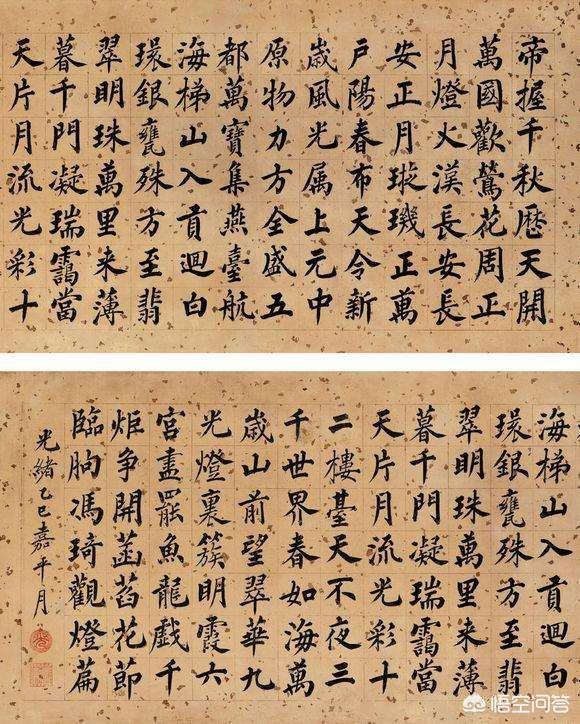 帝握千秋厯天開
萬國歡鶯花周正
月燈火漢長安長
安正月璇璣正萬
戸陽春布天令新
歳風光属上元中
原物力方全盛五
都萬寶集燕臺航
海梯山入貢迴白
環銀甕殊方至翡
翠明珠萬里来薄
暮千門凝瑞靄當
天片月流光彩十
海梯山入貢迴白
環銀甕殊方至翡
翠明珠萬里来薄
暮千門凝瑞靄當
天片月流光彩十
二樓臺天不夜三
千世界春如海萬
歳山前望翠華九
光燈裏簇明霞六
宮盡罷魚龍戲千
炬争開菡萏花節
臨朐馮琦觀燈篇
光緒乙巳嘉平月
悟空问答